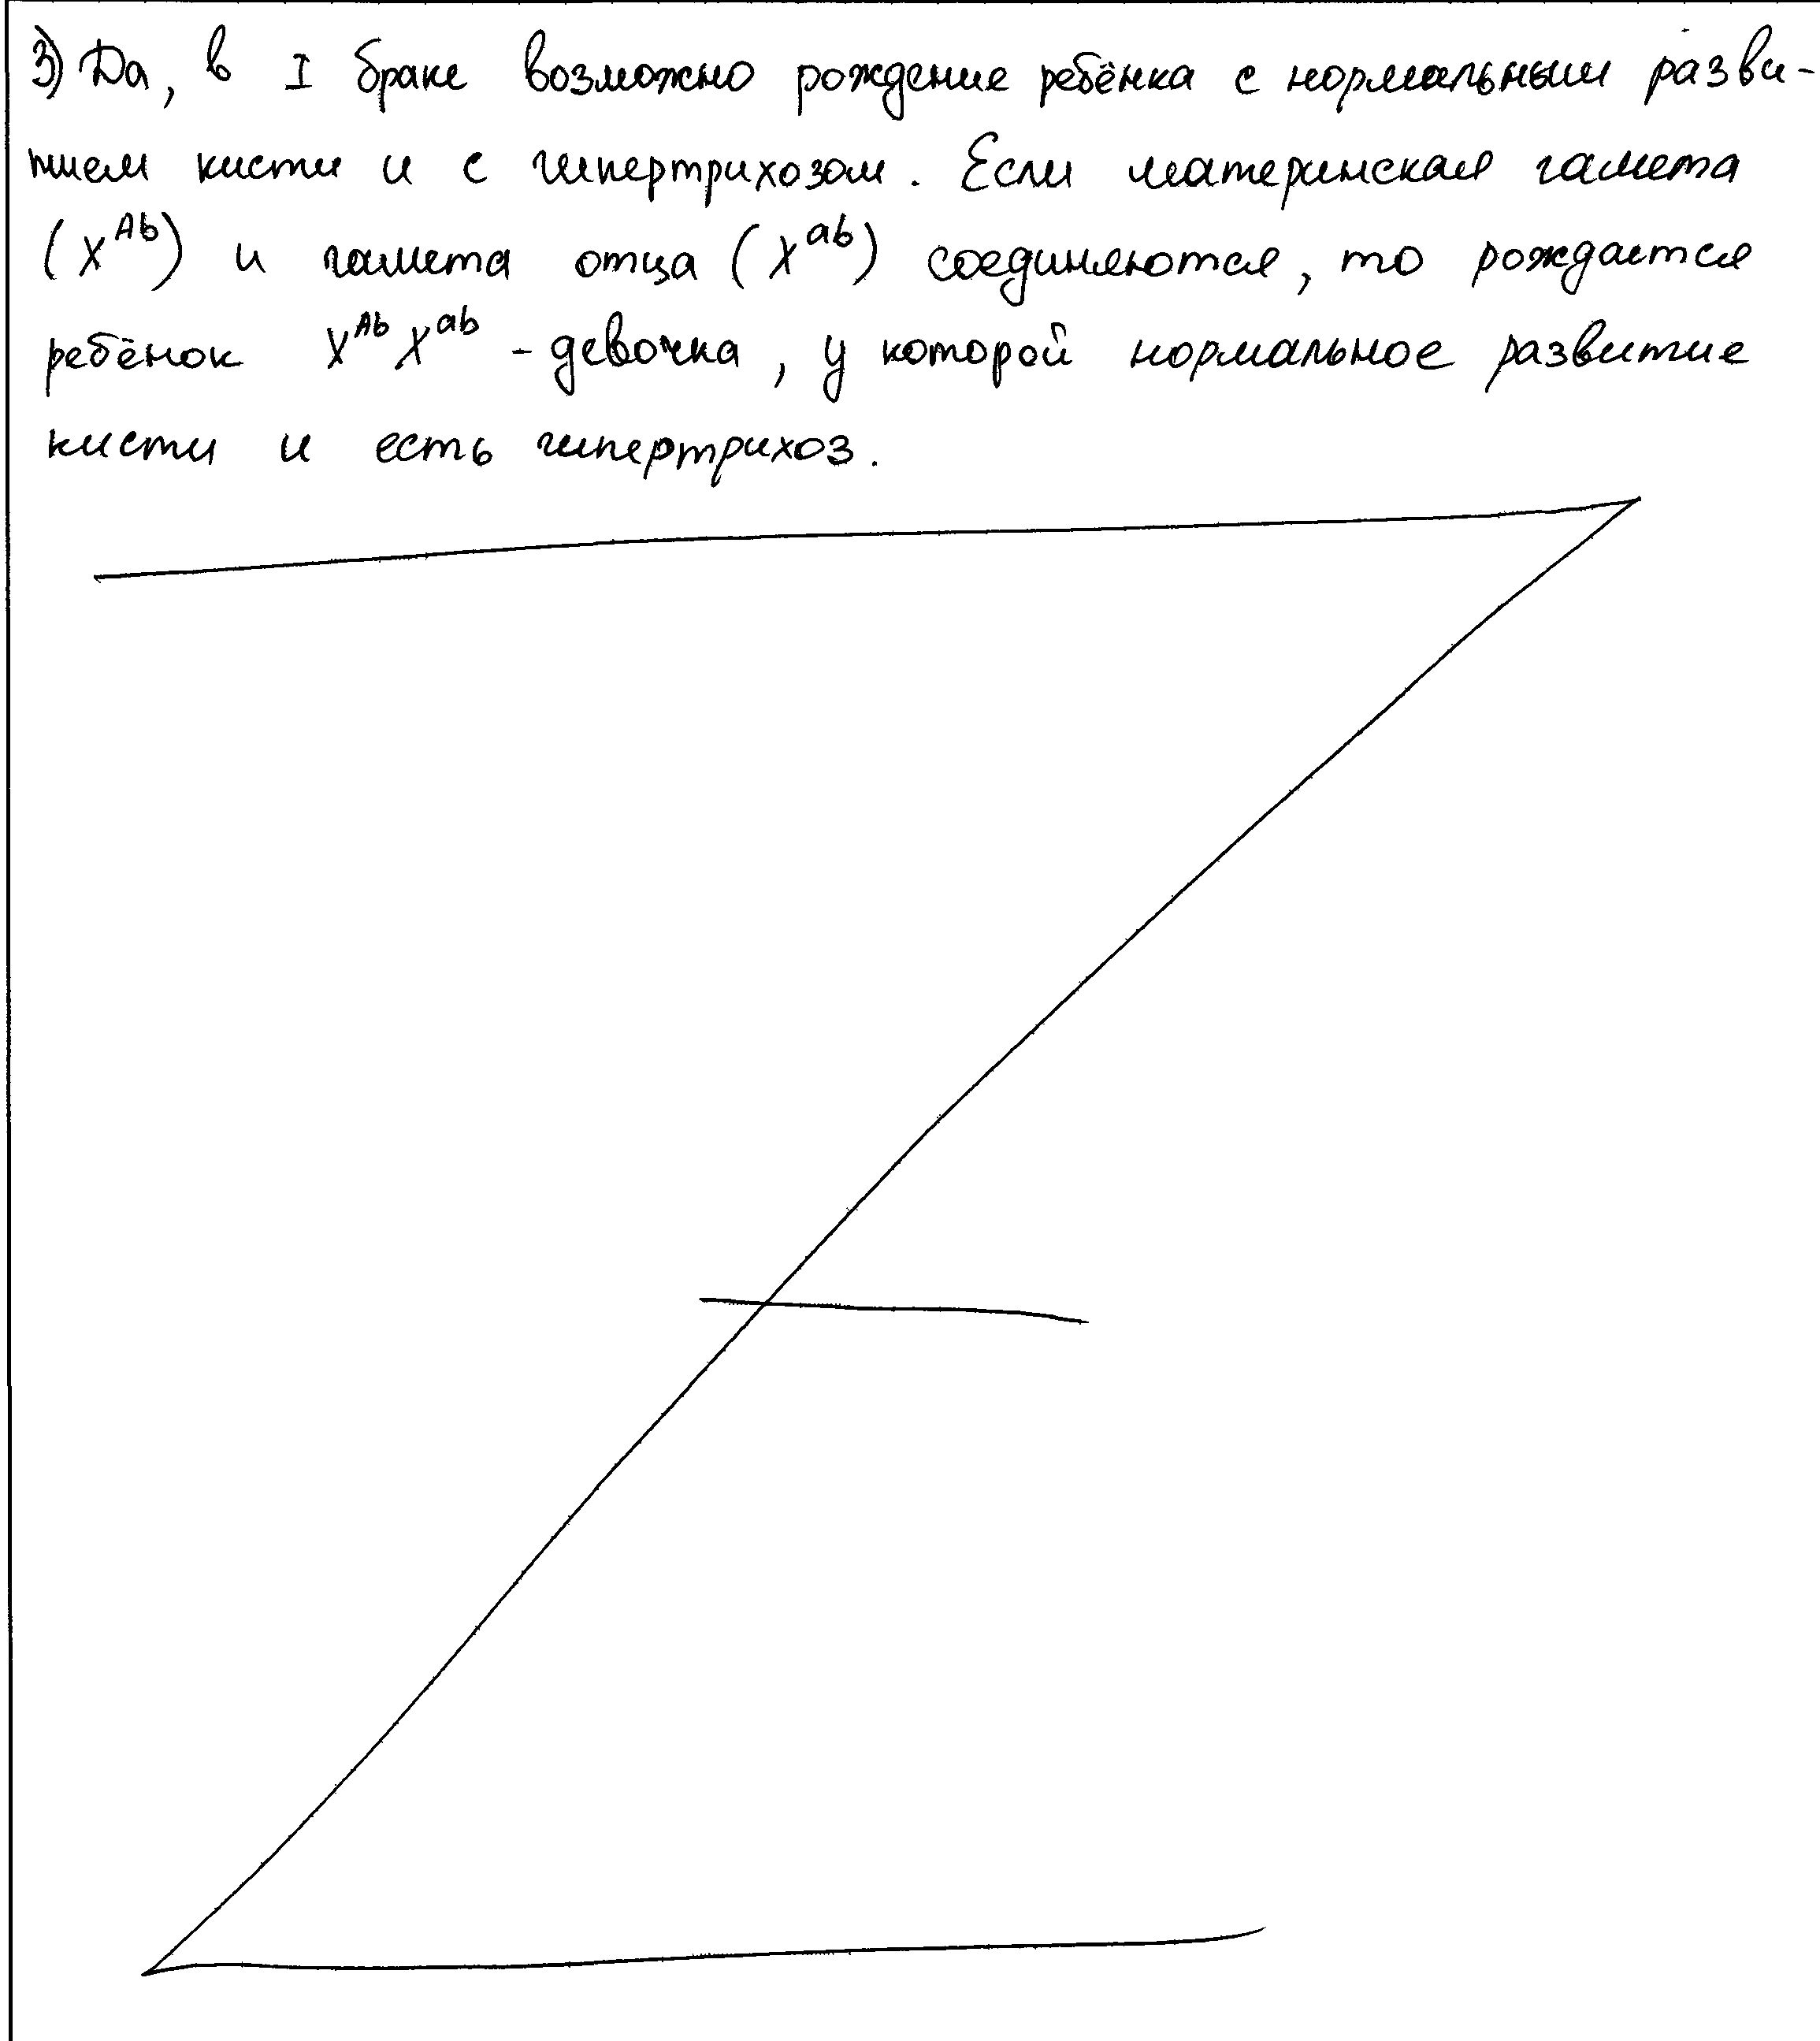 3) Да, в I браке возможно рождение ребёнка с нормальным разви-
тием кисти и с гипертрихозом. Если материнская гамета
(X^Ab) и гамета отца (X^ab) соединяются, то рождается
ребёнок X^Ab X^ab - девочка, у которой нормальное развитие
кисти и есть гипертрихоз.